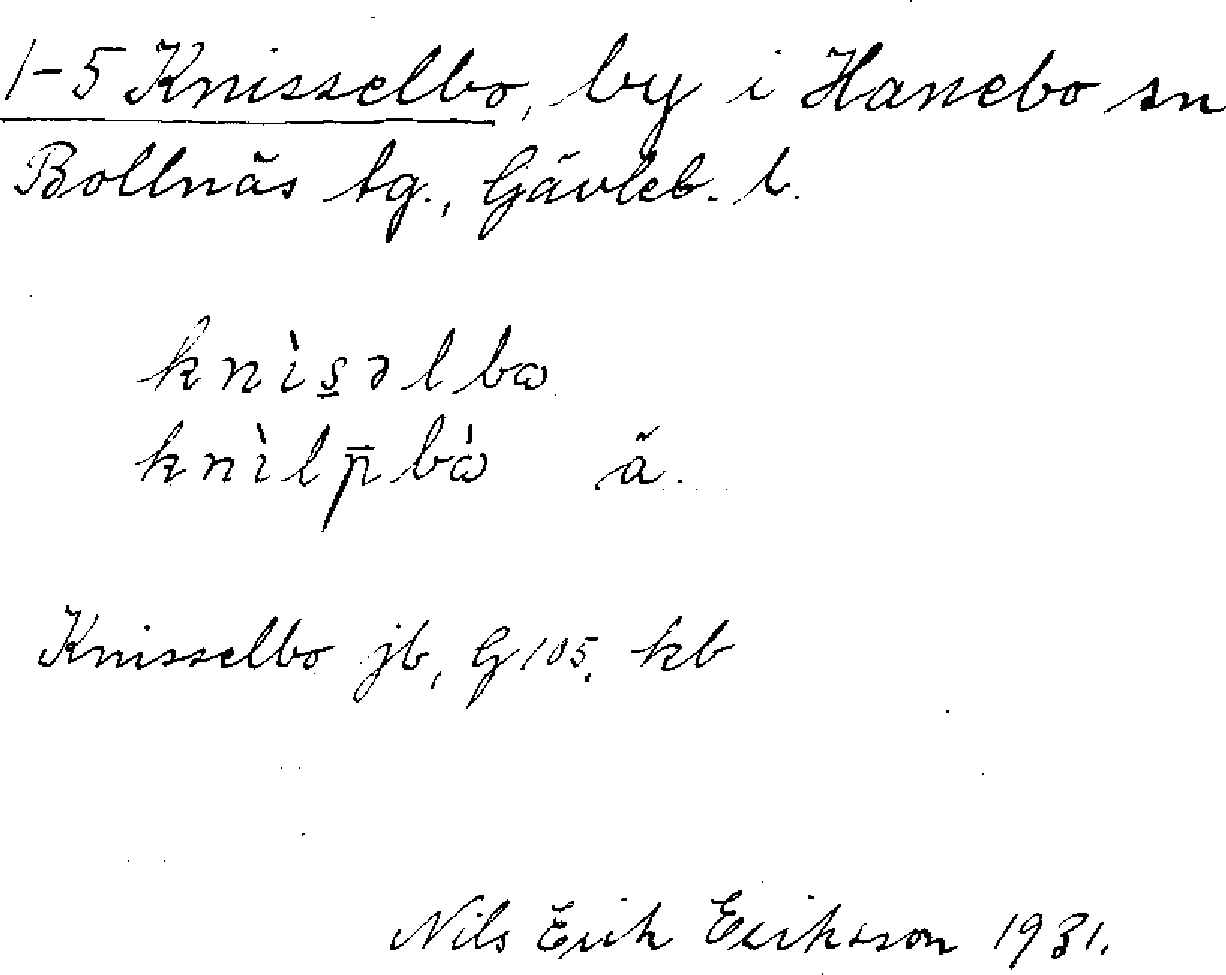 1-5 Knisselbo, by i Hanebo sn
Bollnäs tg., Gävleb. l.
knìs̱əlbɷ
knìlp̄bɷ̀ ä.
Knisselbo jb, G 105, kb
Nils Erik Eriksson 1931.